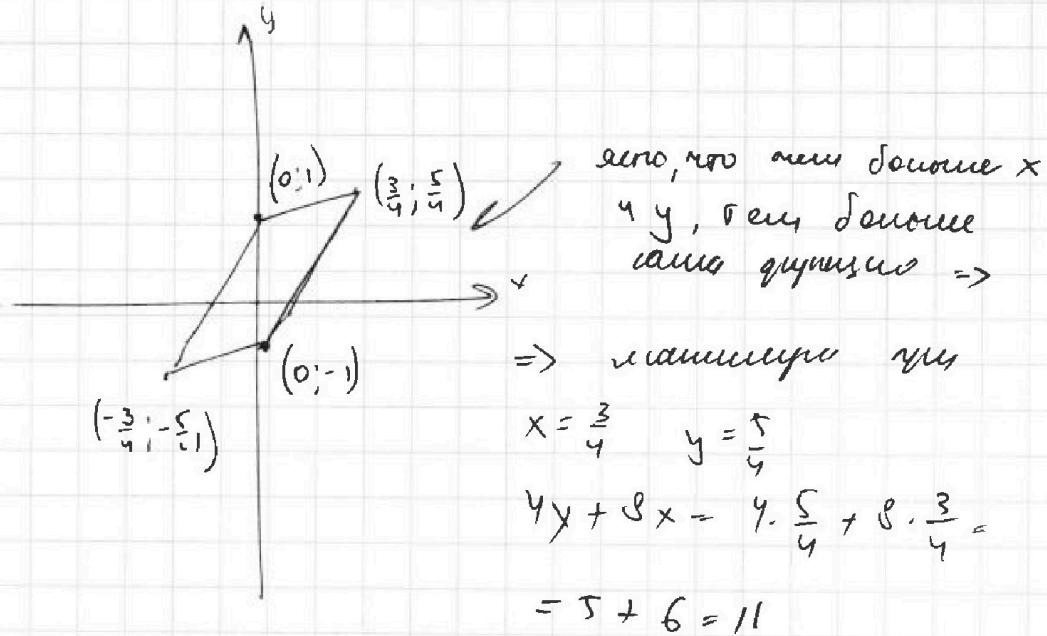 y
(0;1)
(3/4; 5/4)
ясно, что чем больше x
и y, тем больше
сама функция =>
x
(0;-1)
(-3/4; -5/4)
=> максимум при
x = 3/4 y = 5/4
4y + 8x = 4 · 5/4 + 8 · 3/4 =
= 5 + 6 = 11